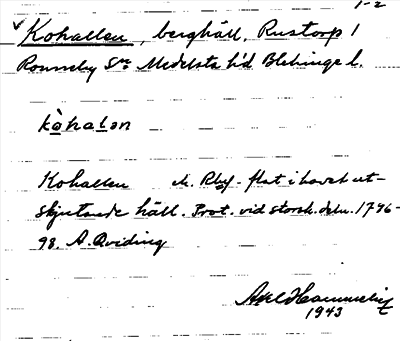 1-2
Kohallen, berghäll, Rustorp 1
Ronneby Sn Medelsta hd Blekinge l.
kòhalən
Kohallen flat i havet ut-
skjutande häll. Prot. vid storsk. deln. 1796-
98. A. Qviding
Axel
1943